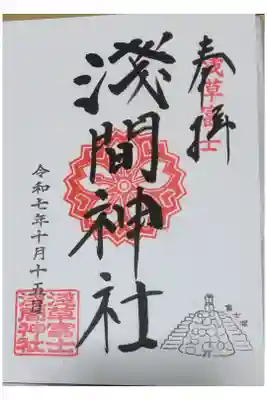 奉拝
浅草富士
淺間神社
令和七年十月十五日
淺草富士
淺間神社
富士塚